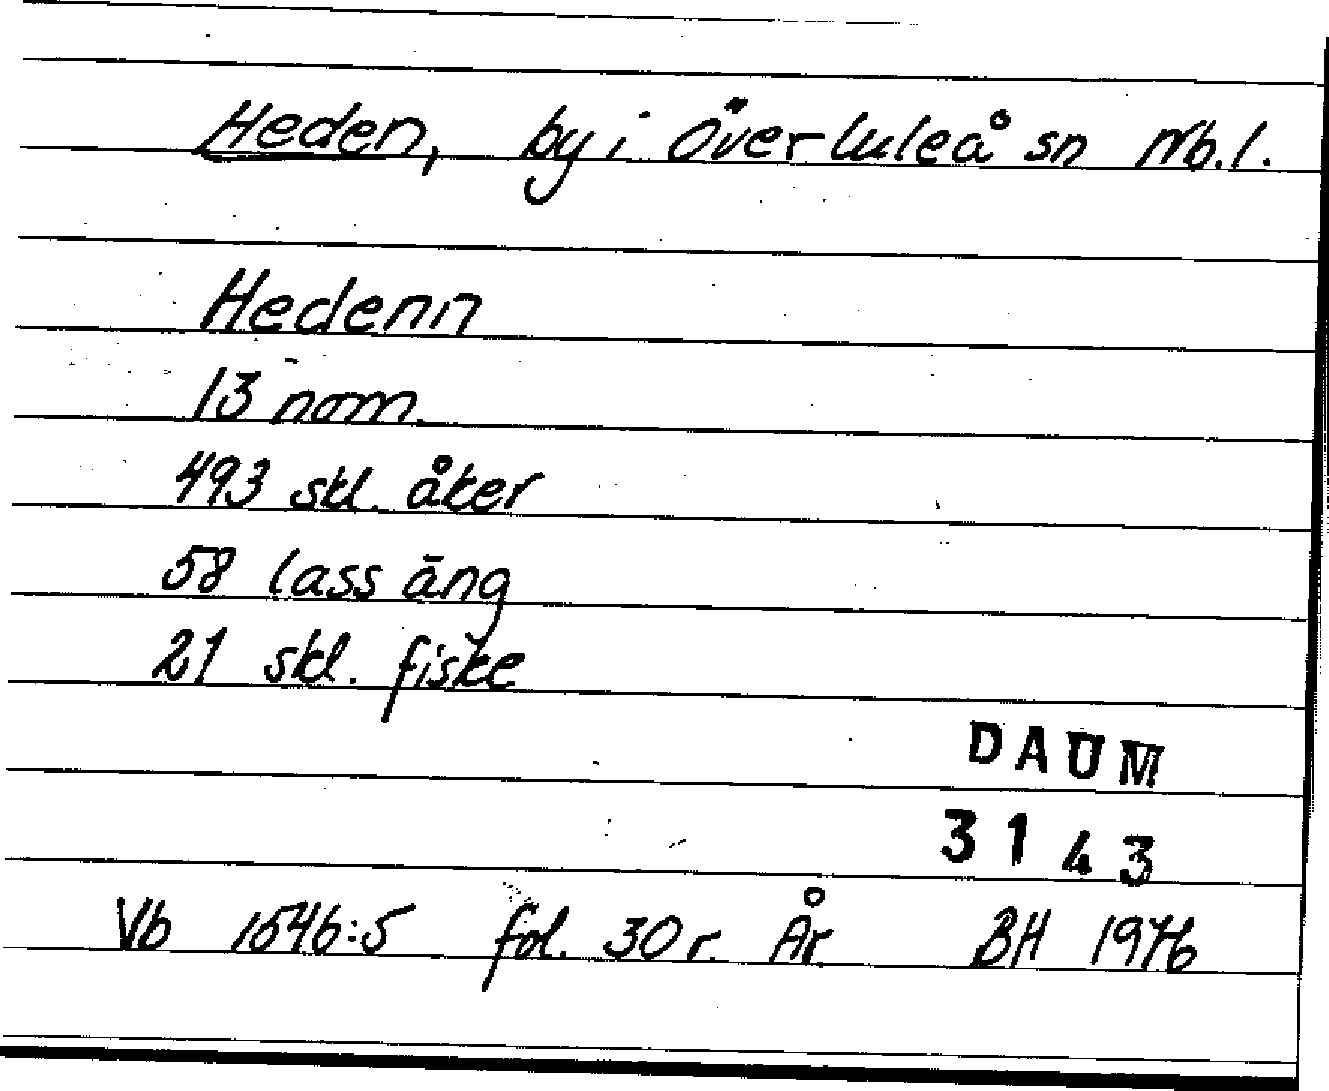 Heden, by i Överluleå sn Nb.l.
Hedenn
13 nom.
493 skl. åker
58 lass äng
21 skl. fiske
DAUM
3143
Vb 1546:5 fol. 30 r. År BH 1976